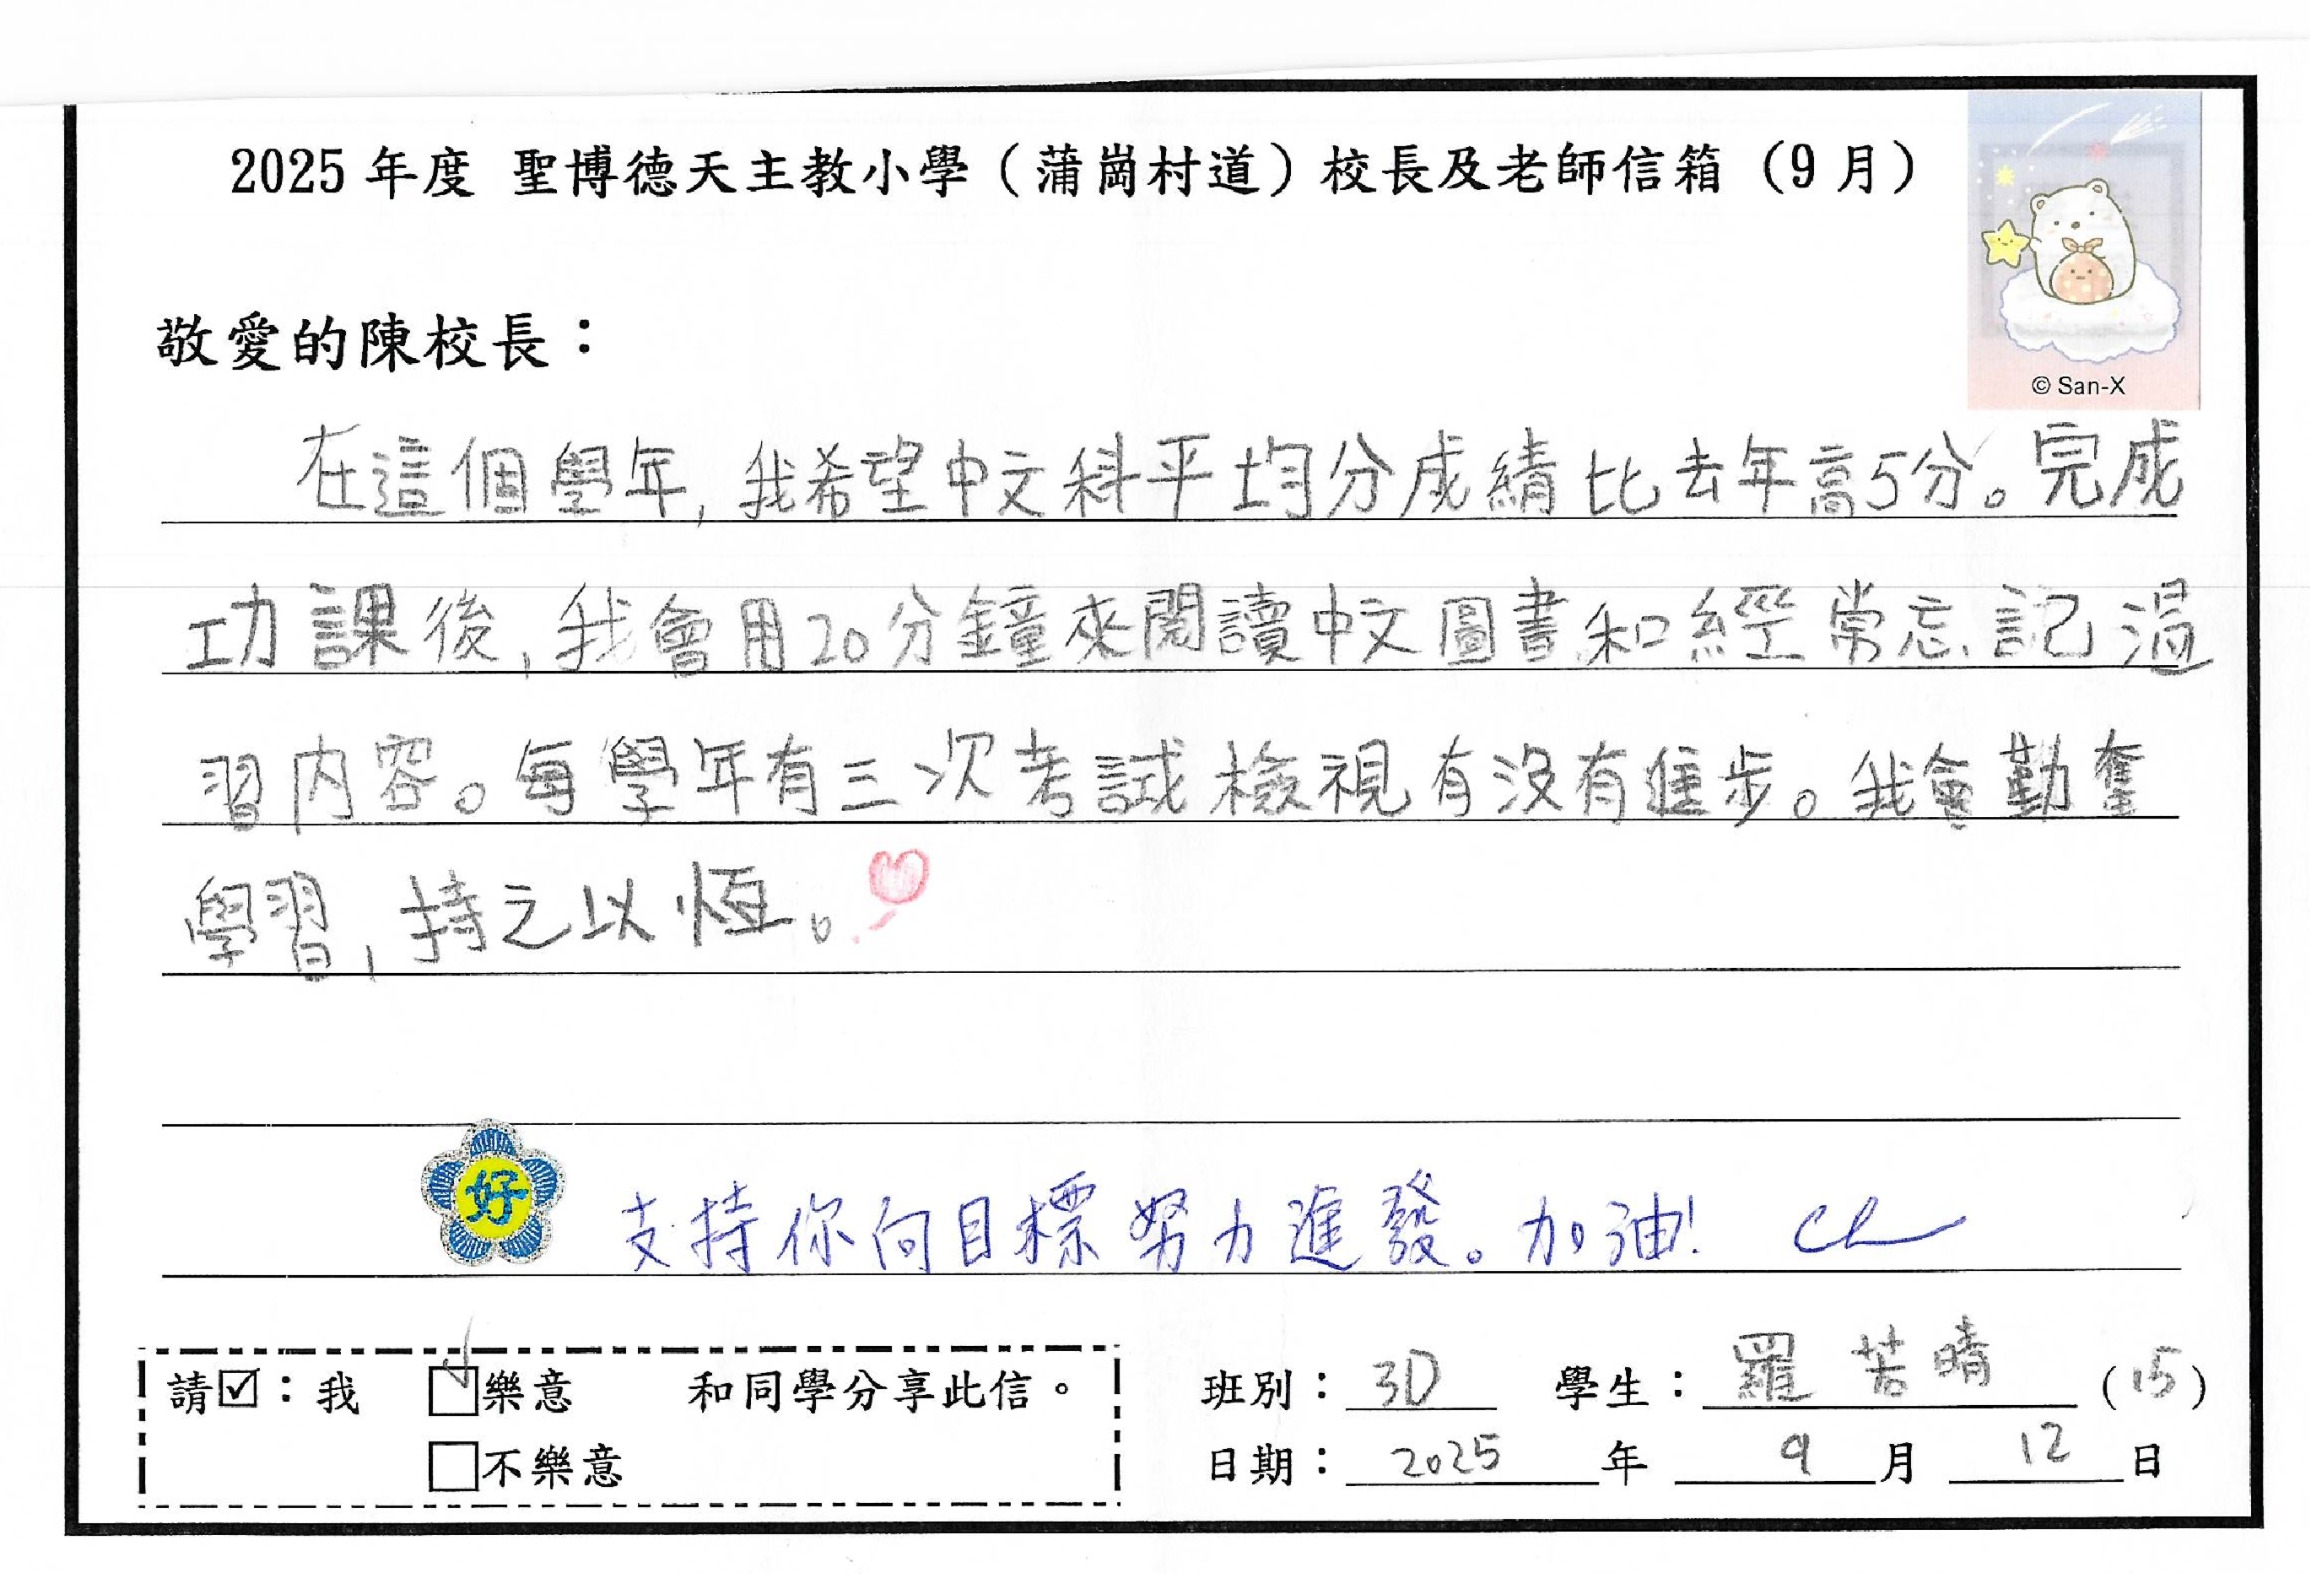 2025 年度 聖博德天主教小學（蒲崗村道）校長及老師信箱（9 月）
© San-X
敬愛的陳校長：
在這個學年，我希望中文科平均分成績比去年高5分。完成
功課後，我會用20分鐘來閱讀中文圖書和經常忘記溫
習內容。每學年有三次考試檢視有沒有進步。我會勤奮
學習，持之以恆。
好
支持你向目標努力進發。加油!
請☑：我 ☑樂意 和同學分享此信。
□不樂意
班別：3D 學生：羅若晴 (15)
日期：2025 年 9 月 12 日